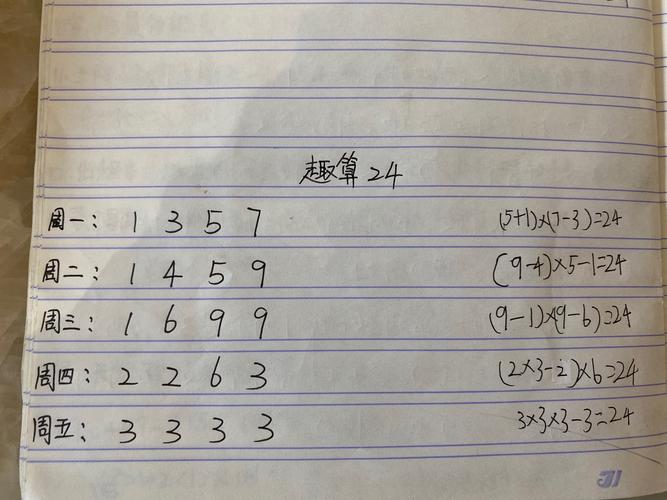 趣算24
周一: 1 3 5 7 (5+1)×(7-3)=24
周二: 1 4 5 9 (9-4)×5-1=24
周三: 1 6 9 9 (9-1)×(9-6)=24
周四: 2 2 6 3 (2×3-2)×6=24
周五: 3 3 3 3 3×3×3-3=24